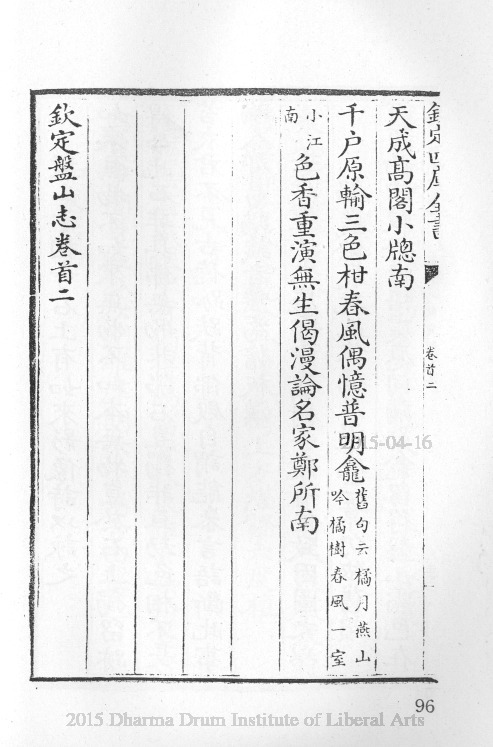 欽定四庫全書
卷首二
天成髙閣小牎南
千户原輪三色柑春風偶憶普明龕舊句云橘月燕山
吟橘樹春風一室
小江
南
色香重演無生偈漫論名家鄭所南
欽定盤山志卷首二
2015-04-16
96
2015 Dharma Drum Institute of Liberal Arts